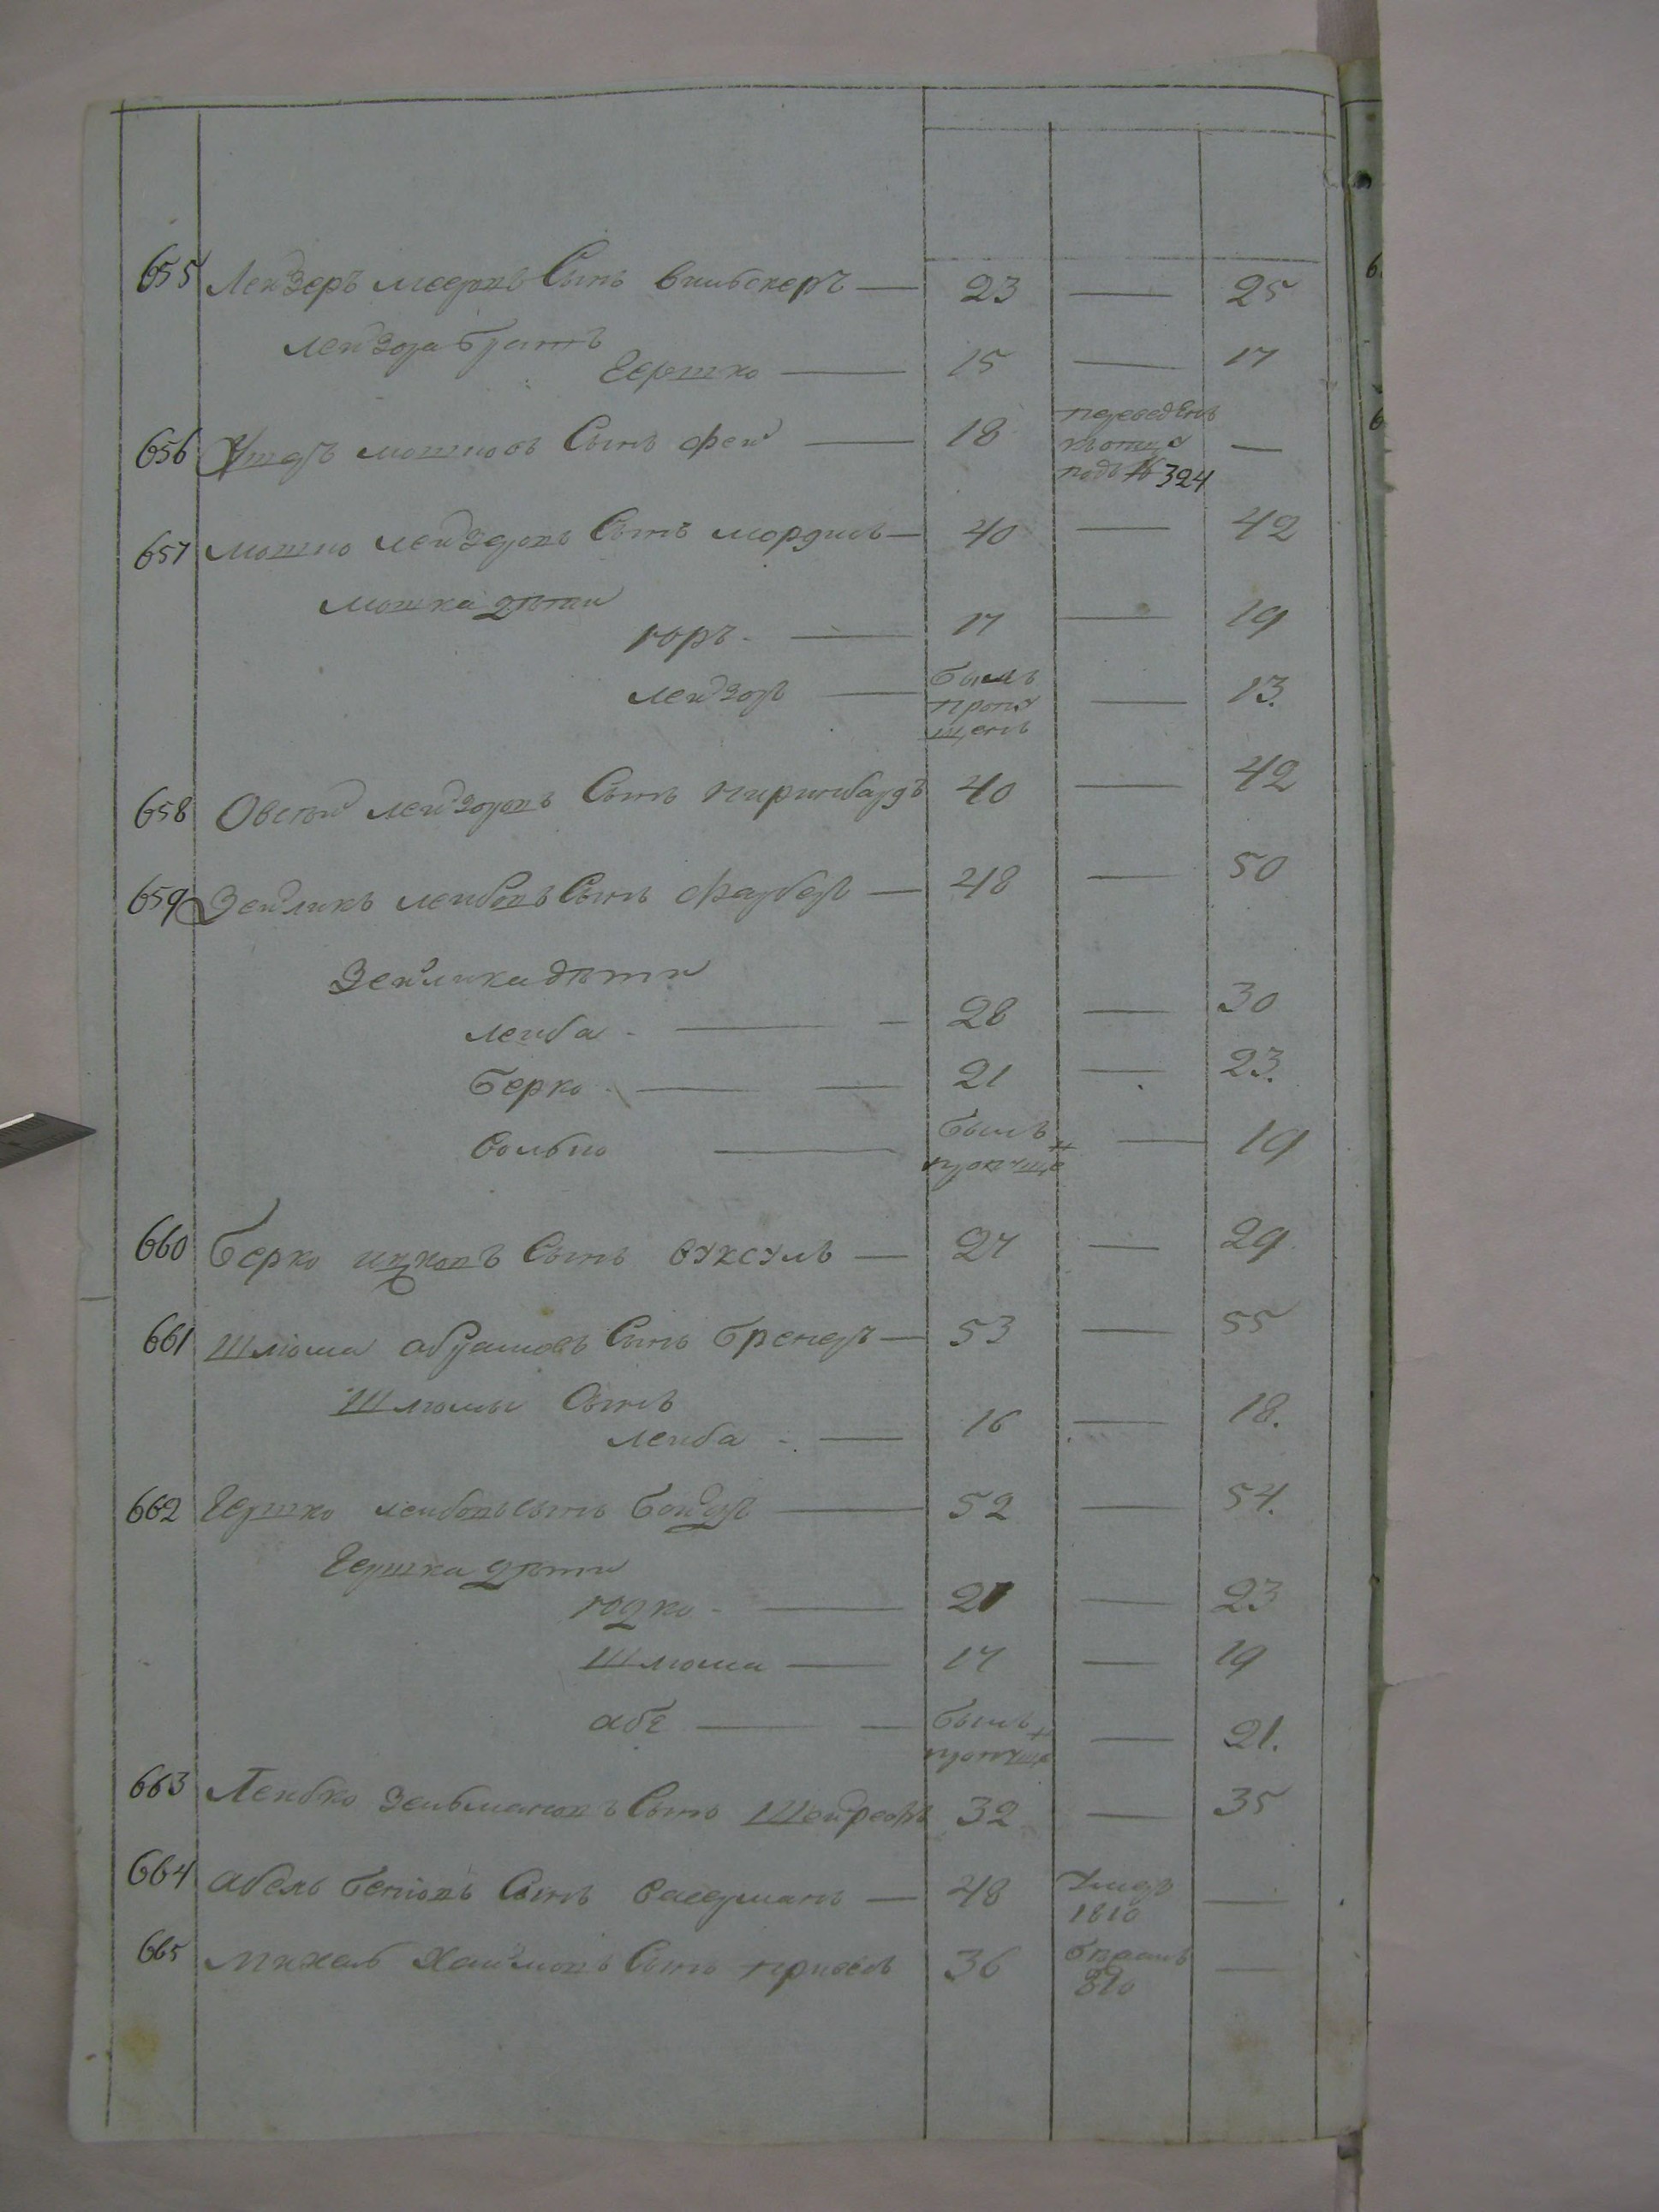 655 Лейзеръ мееровъ Сынъ вильскеръ — 23 — 25
Лейзора братъ
Гершко — 15 — 17
656 мошковъ Сынъ фей — 18 переведенъ
къ отцу —
подъ № 324
657 мошко лейзеровъ Сынъ мордуль — 40 — 42
мошка дѣти
юръ — 17 — 19
лейзоръ — былъ пропу щенъ — 13.
658 Овсѣй лейзоровъ Сынъ 40 — 42
659 Зейликъ лейбовъ Сынъ фарберъ — 48 — 50
Зейлика дѣти
лейба — 28 — 30
берко — 21 — 23.
волько — былъ пропуще н — 19
660 берко ицковъ Сынъ вуксуль — 27 — 29
661 Шліома абрамовъ Сынъ бренеръ — 53 — 55
Шлюмы Сынъ
лейба — 16 — 18.
662 Гершко лейбовъ сынъ — 52 — 54.
Гершка дѣти
юдко — 21 — 23
Шлюма — 17 — 19
абе — былъ пропуще н — 21.
663 Лейбко зельмановъ Сынъ 32 — 35
664 абель беніовъ Сынъ васерманъ — 48 умеръ 1810 —
665 михель Хаймовъ Сынъ 36 810 —